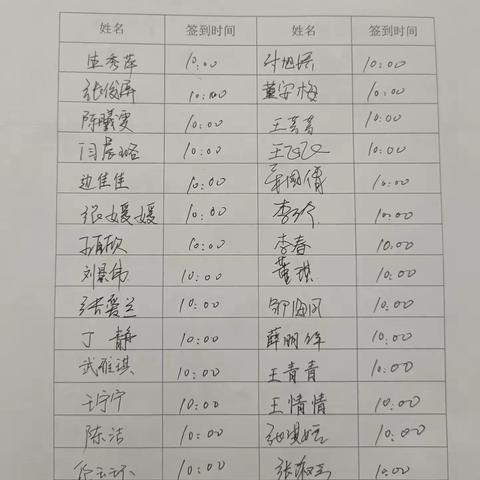 姓名 签到时间 姓名 签到时间
生秀萍 10:00 付旭瑶 10:00
张俊屏 10:00 董安梅 10:00
陈曦雯 10:00 王青青 10:00
闫晨璐 10:00 王飞飞 10:00
边佳佳 10:00 10:00
张媛媛 10:00 李珍 10:00
10:00 李春 10:00
刘景伟 10:00 董琪 10:00
张爱兰 10:00 邹海凤 10:00
丁静 10:00 薛明 10:00
武雅琪 10:00 王青青 10:00
王宁宁 10:00 王情情 10:00
陈洁 10:00 10:00
10:00 张淑玉 10:00